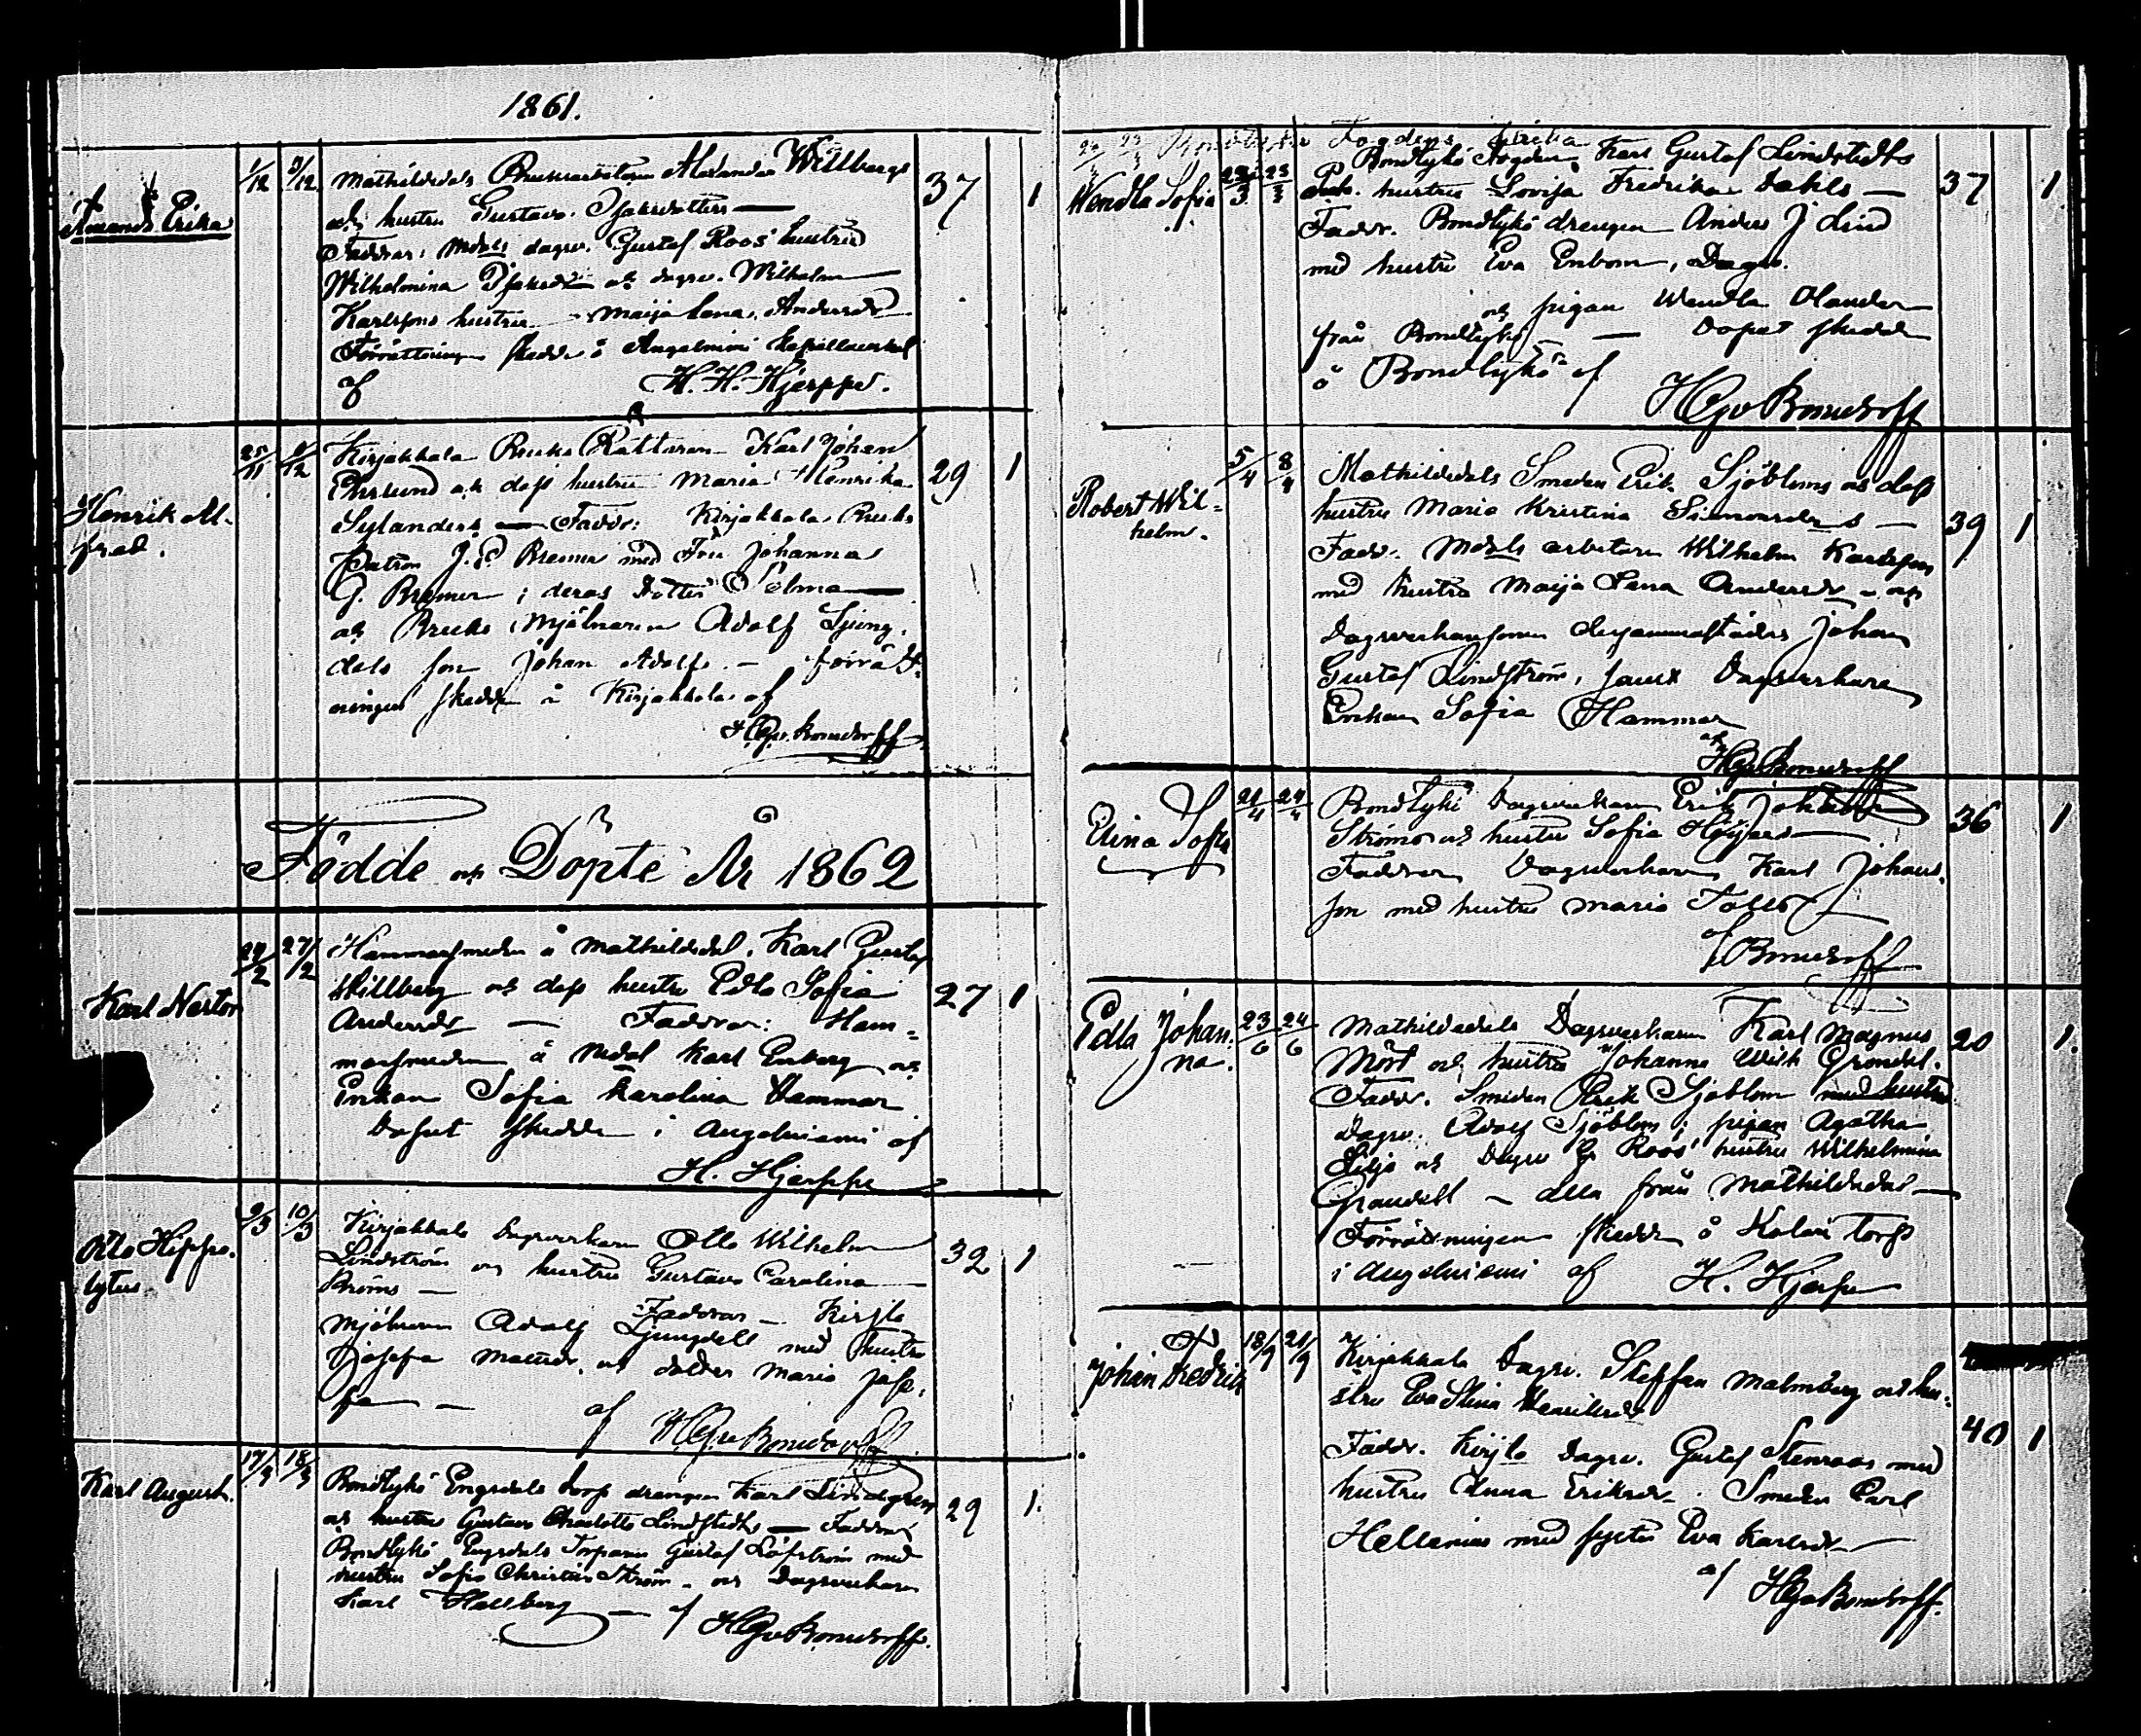 1861.
Amanda Erika
1/12 3/12 Mathildedals Bruksarbetaren Alexander Willbergs 37 1
och hustru Gustava Isaksdotters —
Faddrar: Mdals dagsv. Gustaf Roos' hustru
Wilhelmina Isaksdr och dagsv. Wilhelm
Karlssons hustru Maija Lena Andersdr
Förrättningen skedde å Angelniemi
af H. H. Hjerppe.
Henrik Al-
frad.
25/11 /12 Kirjakkala Bruks Rättaren Karl Johan 29 1
och dess hustru Maria Henrika
Sylanders — Faddr: Kirjakkala Bruks
Patron J. P. Bremer med Fru Johanna
G. Bremer; deras dotter Selma —
och Bruks mjölnaren Adolf Ljung-
dels son Johan Adolf. — Förrätt-
ningen skedde å Kirjakkala af
HGvBonsdorff
Födde och Döpte År 1862
Karl Nestor
24/2 27/2 Hammarsmeden å Mathildedal, Karl Gustaf
Willberg och dess hustru Edla Sofia 27 1
Andersdr — Faddrar: Ham-
marsmeden å Mdal Karl Enberg och
Enkan Sofia Karolina Hammar
Dopet skedde i Angelniemi af
H. Hjerppe
Otto Hippo-
lytus
9/3 10/3 Kirjakkala Dagsverkaren Otto Wilhelm 32 1
Lindström och hustru Gustava Carolina
Ströms —
Faddrar — Kirjla
mjölnaren Adolf Ljungdell med hustru
Josefa Mattsdr. och dotter Maria Jose-
fa — af HGvBonsdorff
Karl August.
17/3 18/3 Bondkykö Engsdals torp drengen Karl Lindgren 29 1.
och hustru Gustava Charlotta Lindstedts — Faddrar
Bondkykö Engsdals Torparen Gustaf Löfström med
hustru Sofia Christina Ström — och Dagsverkaren
Karl Hallberg — af HGvBonsdorff.
Wendla Sofia
22/3 23/3 Bondkykö Fogden Karl Gustaf Lindstedts 37 1
hustru Lovisa Fredrika Dahls —
Faddr. Bondkykö drengen Anders J Lind
med hustru Eva Enbom, Dagsv.
och pigan Wendla Olander
från Bondkykö — Dopet skedde
å Bondkykö af
HGvBonsdorff
Robert Wil-
helm.
5/4 8/4 Mathildedals Smeden Erik Sjöbloms och dess
hustru Maria Kristina Simonsdrs — 39 1
Faddr. Mdals arbetaren Wilhelm Karlsson
med hustru Maija Lena Andersdr — och
Dagsverkaresonen Johan
Gustaf Lindström, samt Dagsverkare
Enkan Sofia Hammar
af HGvBonsdorff
Elina Sofia
21/4 24/4 Bondkykö Dagsverkaren Erik Johan 36 1
Ströms och hustru Sofia Höijers —
Faddrar Dagsverkaren Karl Johans-
son med hustru Maria
Bonsdorff
Edla Johan-
na.
23/6 24/6 Mathildedals Dagsverkaren Karl Magnus 20 1.
Mört och hustru Johanna Grondel.
Faddr. Smeden Erik Sjöblom med hustru
Dagsv. Adolf Sjöblom; pigan Agatha
Silje och Dagsv G. Roos' hustru Wilhelmina
Grandell — alla från Mathildedal —
Förrättningen skedde å torp
i Angelniemi af H. Hjerppe
Johan Fredrik
18/9 21/9 Kirjakkala Dagsv. Steffan Malmberg och hu-
stru Eva Stina Henriksdr 40 1
Faddr. Kirjla Dagsv. Gustaf Stenroos med
hustru Anna Eriksdr — Smeden Carl
Hellenius med syster Eva Karlsdr —
af HGvBonsdorff.